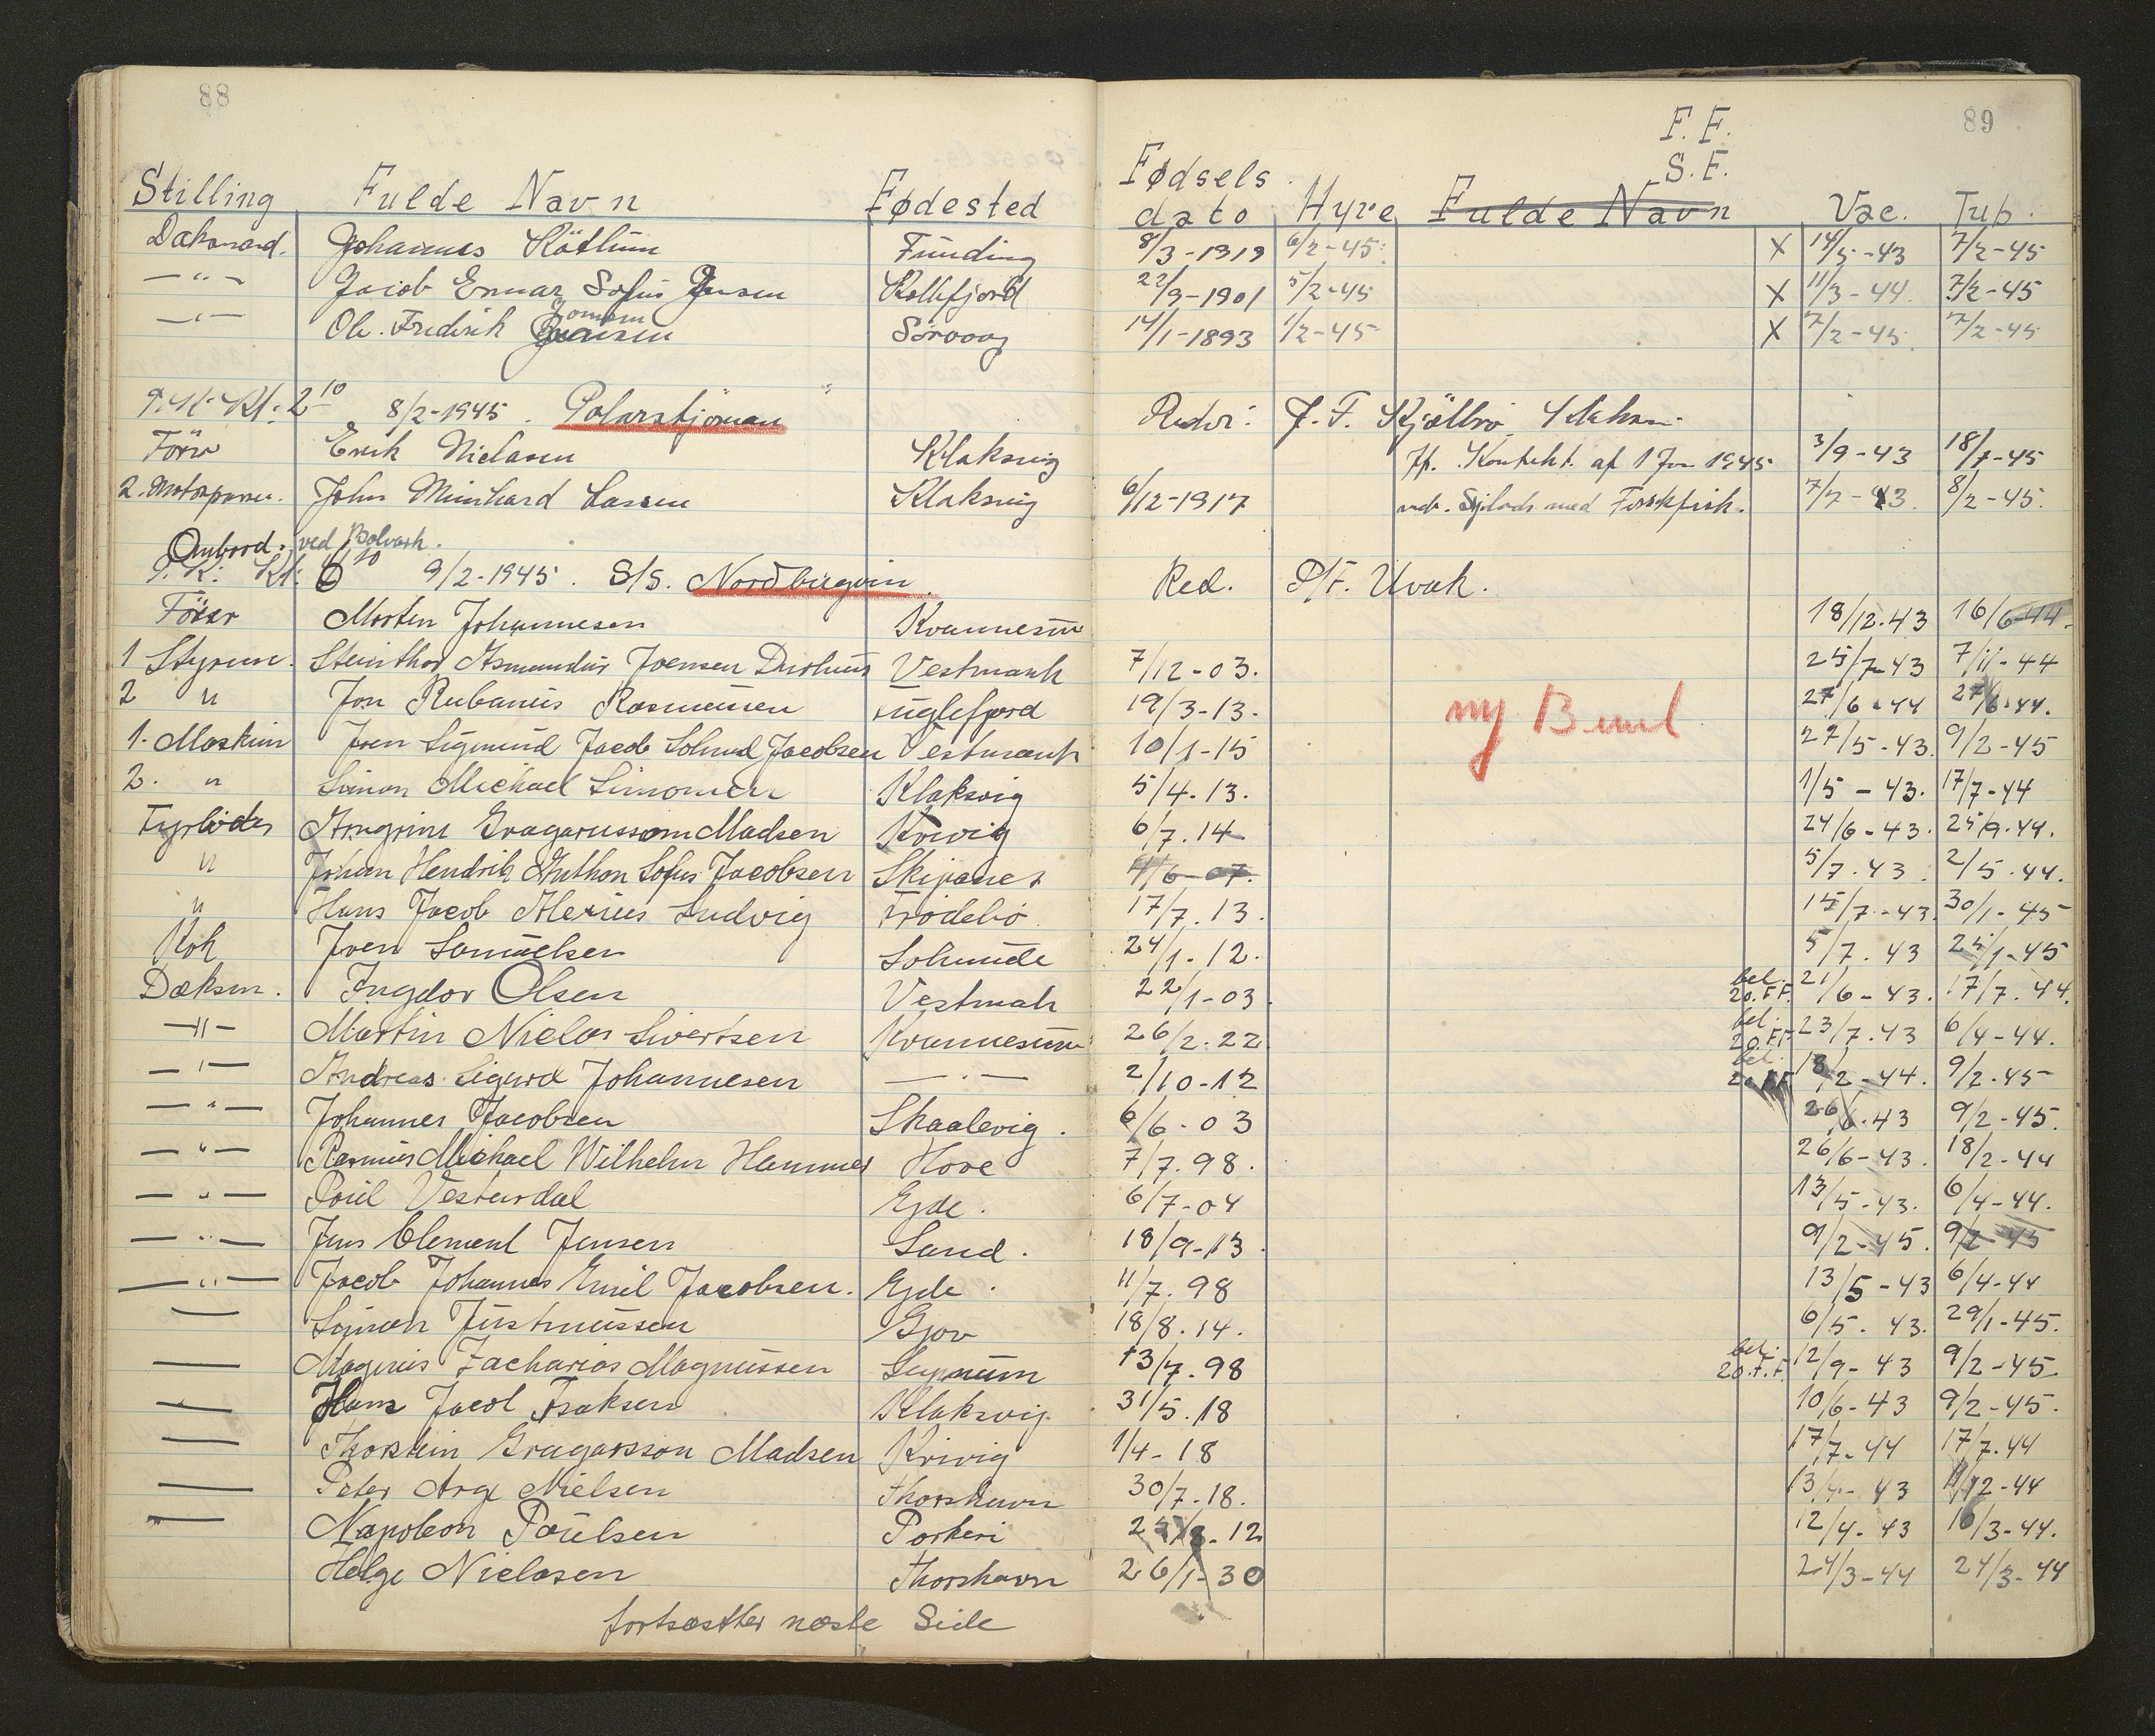 88
89
F. F.
S. E.
Stilling Fulde Navn Fødested Fødsels dato Hyre Fulde Navn Vac. Tub.
Johannes Funding 8/3-1919 6/2-45 X 14/5-43 7/2-45
—"— Jacob Sofus Kollefjord 22/9-1901 5/2-45 X 11/3-44 7/2-45
—"— Ole Frederik Sörvaag 14/1-1893 1/2-45 X 7/2-45 7/2-45
Kr. 2 10 8/2-1945. Polarstjörnan Reder: J. F. Kjölbro
Förer Erik Nielasen Klaksvig Kontrakt af 1 Jan 1945 3/9-43 18/7-45
2. John Klaksvig 6/12-1917 med 7/7-43 8/2-45.
Ombord ved Bolværk.
Kr. 6 10 9/2-1945. S/S. Nordbugvin Red. P/F. Uvak.
Förer Morten Johannesen Kvannesun 18/12.43 16/6-44.
1 Styrm. Steinthor Asmundur Joensen Durhuus Vestmanh 7/12-03. 25/7-43 7/11-44
2 " Jon Rubanus Rasmussen Fuglefjord 19/3-13. 27/6-44 27/6-44.
ny
1. Maskin Joen Sigmund Jacob Jacobsen Vestmanh 10/1-15 27/5-43. 9/2-45
2. " Simon Michael Simonsen Klaksvig 5/4.13. 1/5-43. 17/7-44
Fyrböder Arngrim Gragarussom Madsen Krivig 6/7.14 24/6-43. 25/9.44.
" Johan Hendrik Anthon Sofus Jacobsen Skipanes 4/6-07. 5/7.43. 2/5.44.
" Hans Jacob Alexius Ludvig Frodebö 17/7.13. 15/7-43. 30/1-45
Kok Joen Samuelsen 24/1.12. 5/7.43 25/1-45
Dæksm. Ingdor Olsen Vestmah 22/1-03. bel. 20. F.F. 21/6-43. 17/7.44.
—"— Martin Nielas Sivertsen Kvannesund 26/2.22 bel. 20. FF 23/7.43 6/4-44.
—"— Andreas Sigurd Johannesen —"— 2/10-12 bel. 20. FF 18/2-44. 9/2.45
—"— Johannes Jacobsen Skaalevig. 6/6-03 26/6.43 9/2-45.
—"— Rasmus Michael Wilhelm Hammer Hove 7/7.98. 26/6-43. 18/2-44
—"— Poul Vesturdal Ejde. 6/7-04 13/5-43. 6/4-44.
—"— Jens Clement Jensen Sand. 18/9-13. 9/2-45. 9/2-45
—"— Jacob Johannes Emil Jacobsen. Ejde. 11/7.98 13/5-43 6/4-44
— Justinussen Gjov 18/8.14. 6/5. 43. 29/1-45.
— Magnus Zacharias Magnussen 13/7.98 bet. 20. F.F. 12/9-43 9/2-45
—"— Hans Jacob Isaksen Klaksvig 31/5.18 10/6-43 9/2-45.
— Thorstein Gragarsson Madsen Krivig 1/4-18 17/7-44 17/7.44
— Peter Arge Nielsen Thorshavn 30/7-18. 43 12-44
— Napoleon Poulsen Porkeri 8-12 12/4-43 16/3-44.
Helge Nielasen Thorshavn 26/1-30 24/3-44 24/3-44
fortsættes næste Side